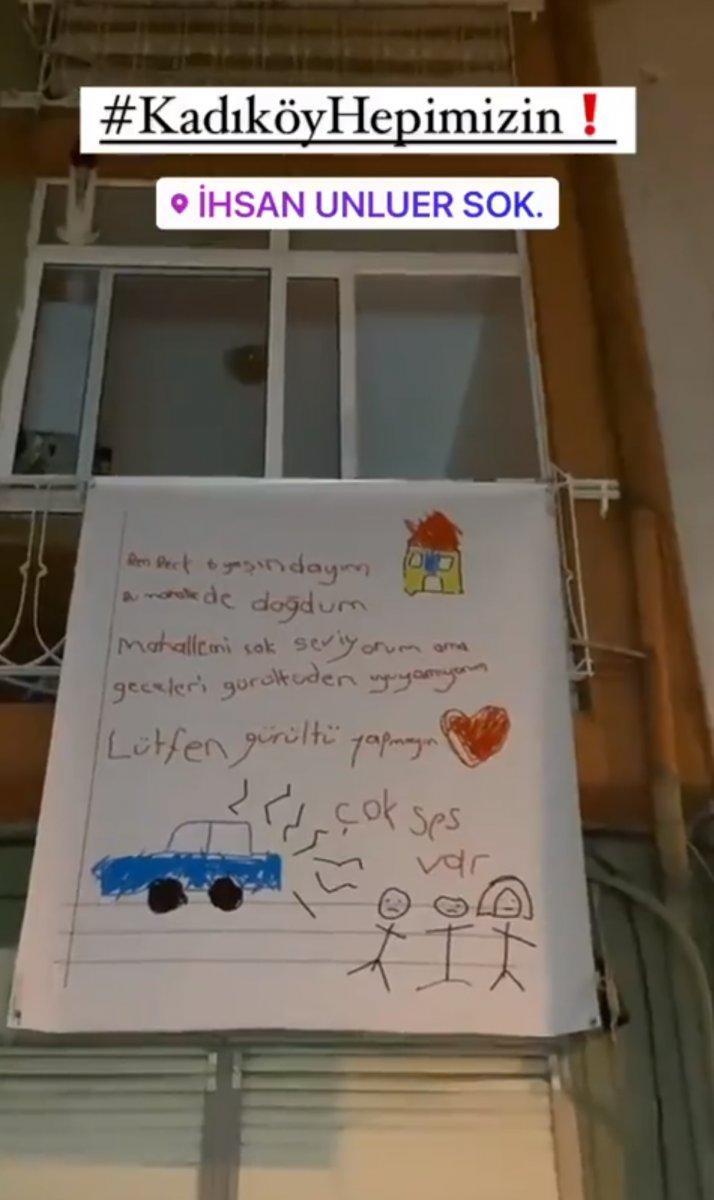 #KadıköyHepimizin❗
İHSAN UNLUER SOK.
Ben 6 yaşındayım
Bu mahallede doğdum
Mahallemi çok seviyorum ama
geceleri gürültüden uyuyamıyorum
Lütfen gürültü yapmayın
çok ses
var